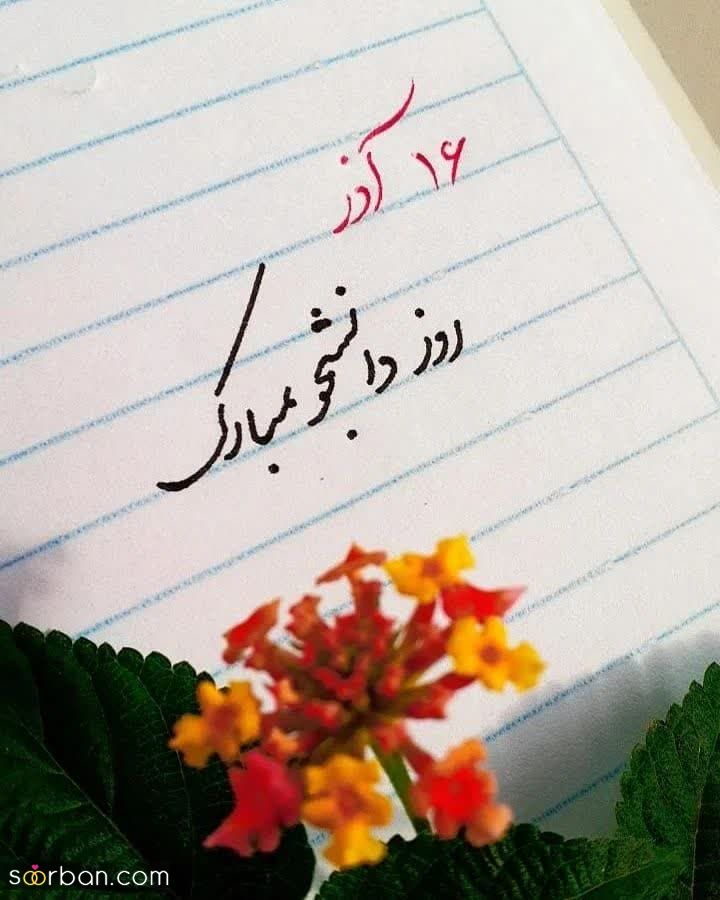 ۱۶ آذر
روز دانشجو مبارک
soorban.com